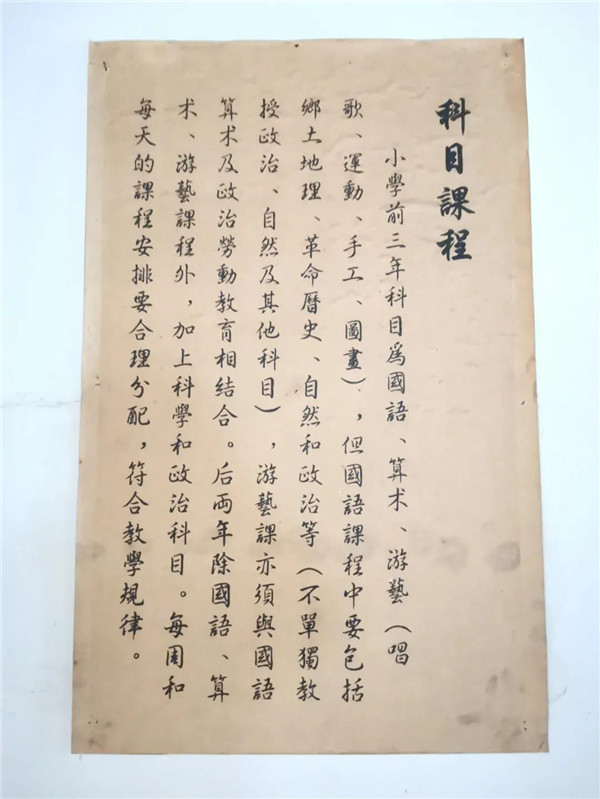 科目課程
小學前三年科目爲國語、算术、游藝（唱
歌、運動、手工、圖畫），但國語課程中要包括
鄉土地理、革命曆史、自然和政治等（不單獨教
授政治、自然及其他科目），游藝課亦須與國語
算术及政治勞動教育相結合。后兩年除國語、算
术、游藝課程外，加上科學和政治科目。每周和
每天的課程安排要合理分配，符合教學規律。